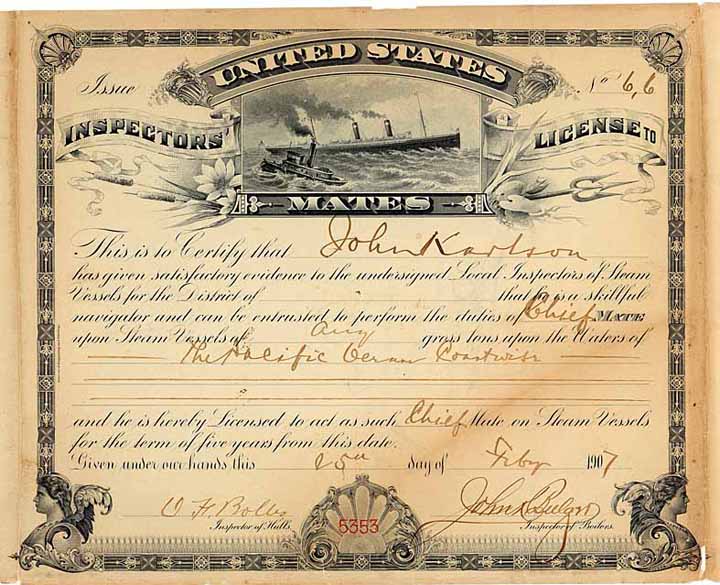 UNITED STATES
Issue No 6,6
INSPECTORS' LICENSE TO
MATES
This is to Certify that John Karlson
has given satisfactory evidence to the undersigned Local Inspectors of Steam
Vessels for the District of that he is a skillful
navigator and can be entrusted to perform the duties of Chief MATE
upon Steam Vessels of any gross tons upon the Waters of
The Pacific Ocean Coastwise
and he is hereby Licensed to act as such Chief Mate on Steam Vessels
for the term of five years from this date.
Given under our hands this 25th day of Feby 1907
O F Bolles John K Bulger
Inspector of Hulls. Inspector of Boilers.
5353